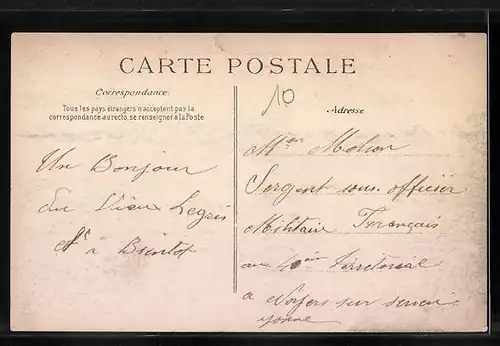 CARTE POSTALE
Correspondance:
Tous les pays étrangers n'acceptent pas la
correspondance au recto, se renseigner à la Poste
10
Adresse
Un Bonjour
du Vieux
et à Bientot
Molion
Sergent sous officier
Militaire Français
au 40 ein Territorial
a Noyers sur serein
yonne